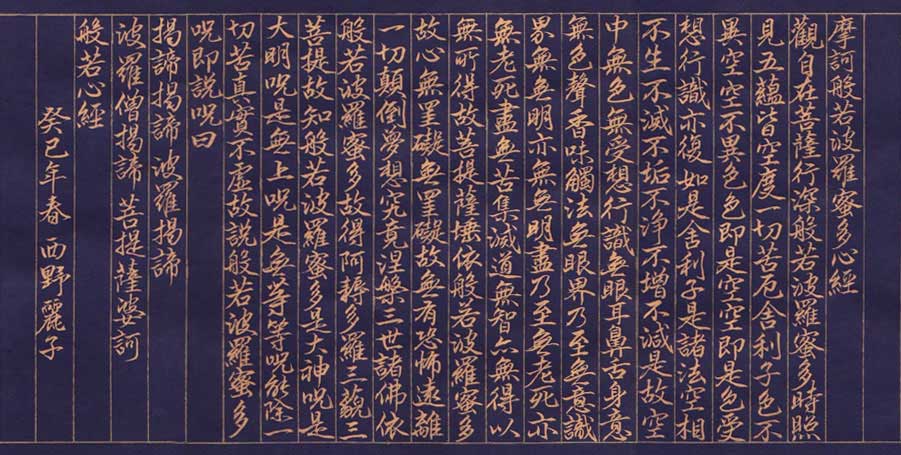 摩訶般若波羅蜜多心經
觀自在菩薩行深般若波羅蜜多時照
見五蘊皆空度一切苦厄舍利子色不
異空空不異色色即是空空即是色受
想行識亦復如是舍利子是諸法空相
不生不滅不垢不淨不增不減是故空
中無色無受想行識無眼耳鼻舌身意
無色聲香味觸法無眼界乃至無意識
界無無明亦無無明盡乃至無老死亦
無老死盡無苦集滅道無智亦無得以
無所得故菩提薩埵依般若波羅蜜多
故心無罣礙無罣礙故無有恐怖遠離
一切顛倒夢想究竟涅槃三世諸佛依
般若波羅蜜多故得阿耨多羅三藐三
菩提故知般若波羅蜜多是大神呪是
大明呪是無上呪是無等等呪能除一
切苦真實不虛故説般若波羅蜜多
呪即説呪曰
揭諦揭諦波羅揭諦
波羅僧揭諦 菩提薩婆訶
般若心經
癸巳年春 西野麗子